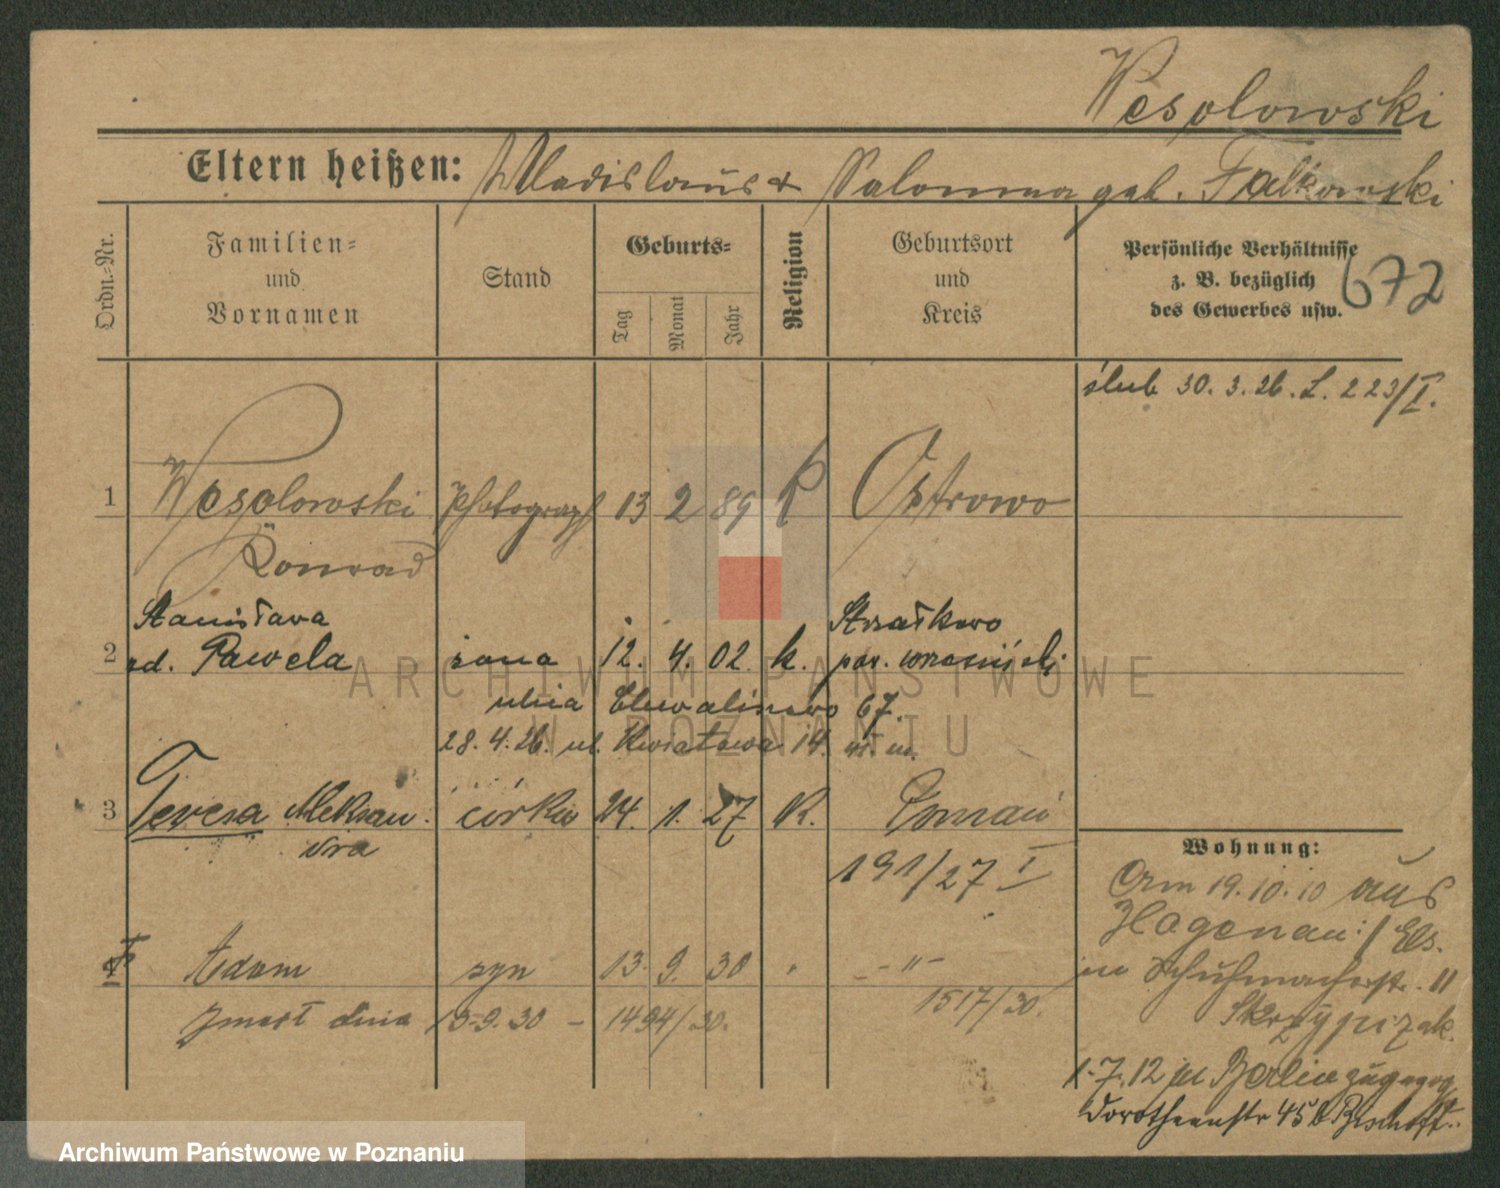 Wesolowski
Eltern heißen: Wladislaus & Salomea geb. Falkowski
Ordn.-Nr.
Familien-
und
Vornamen
Stand
Geburts-
Tag
Monat
Jahr
Religion
Geburtsort
und
Kreis
Persönliche Verhältnisse
z. B. bezüglich
des Gewerbes usw.
672
ślub 30. 3. 26. L. 223/I.
1 Wesolowski Photograph 13 2 89 k Ostrowo
Konrad
Stanisława Strzałkowo
2 zd. Pawela żona 12. 4. 02. k. pow. wrzesiński
ulica 67.
28. 4. 26. ul. Kwiatowa 14. m.
3 Teresa Aleksan- córka 24. 1. 27 K. Poznań
dra
191/27 I
4 Adam syn 13. 9. 30 " - " -
1517/30.
zmarł dnia 15.9.30 - 1494/30.
Wohnung:
Am 19.10.10 aus
Hagenau i/Els.
in Schuhmacherstr. 11
Skrzypczak
1.7.12 Berlin
Dorotheenstr 45 b Bischoff.
ARCHIWUM PAŃSTWOWE
W POZNANIU
Archiwum Państwowe w Poznaniu